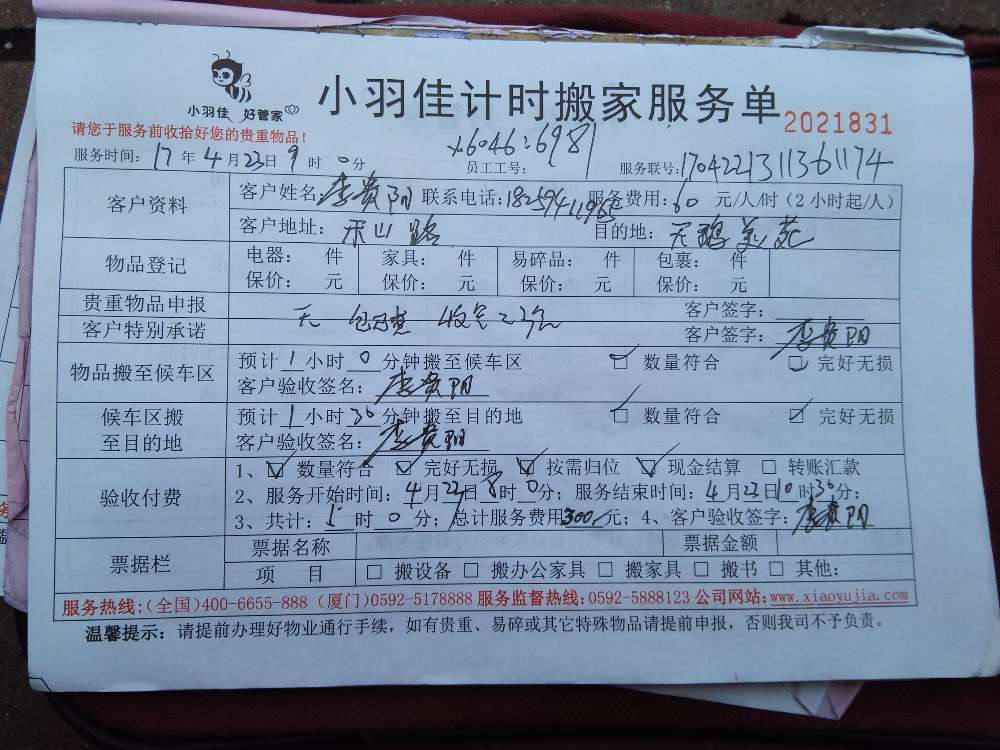 小羽佳 好管家
小羽佳计时搬家服务单 2021831
请您于服务前收拾好您的贵重物品！
服务时间：17年4月23日9时0分 员工工号：x6046:6981 服务联号：1704221311361174
客户资料 客户姓名：李贵阳 联系电话：18259411965 服务费用：60 元/人/时（2小时起/人）
客户地址：禾山路 目的地：天鹅美苑
物品登记 电器： 件 家具： 件 易碎品： 件 包裹： 件
保价： 元 保价： 元 保价： 元 保价： 元
贵重物品申报 客户签字：
客户特别承诺 无 收 客户签字：李贵阳
物品搬至候车区 预计1小时0分钟搬至候车区 数量符合 完好无损
客户验收签名：李贵阳
候车区搬至目的地 预计1小时30分钟搬至目的地 数量符合 完好无损
客户验收签名：李贵阳
验收付费 1、数量符合 完好无损 按需归位 现金结算 转账汇款
2、服务开始时间：4月23日8时0分；服务结束时间：4月23日10时30分；
3、共计： 时0分；总计服务费用300元；4、客户验收签字：李贵阳
票据栏 票据名称 票据金额
项 目 搬设备 搬办公家具 搬家具 搬书 其他：
服务热线：（全国）400-6655-888（厦门）0592-5178888 服务监督热线：0592-5888123 公司网站：www.xiaoyujia.com
温馨提示：请提前办理好物业通行手续，如有贵重、易碎或其它特殊物品请提前申报，否则我司不予负责。